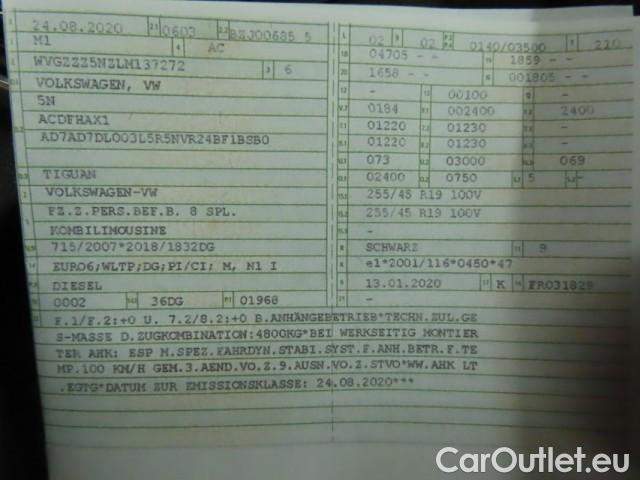 24.08.2020 2.1 0603 2.2 BZJ00685 5
M1 4 AC
WVGZZZ5NZLM137272 3 6
VOLKSWAGEN, VW
5N
ACDFHAX1
AD7AD7DL003L5R5NVR24BF1BSB0
TIGUAN
VOLKSWAGEN-VW
FZ.Z.PERS.BEF.B. 8 SPL.
KOMBILIMOUSINE
715/2007*2018/1832DG
EURO6;WLTP;DG;PI/CI; M, N1 I
DIESEL
0002 36DG 01968
L 02 9 02 0140/03500 T 210
04705 - - 1859 - -
1658 - - 001805 - -
- 00100 -
0184 002400 2400
01220 01230 -
01220 01230 -
073 03000 069
02400 0750 5 -
255/45 R19 100V
255/45 R19 100V
-
SCHWARZ 11 9
e1*2001/116*0450*47
13.01.2020 17 K FR031829
F.1/F.2:+0 U. 7.2/8.2:+0 B.ANHÄNGEBETRIEB*TECHN.ZUL.GE
S-MASSE D.ZUGKOMBINATION:4800KG*BEI WERKSEITIG MONTIER
TER AHK: ESP M.SPEZ.FAHRDYN.STABI.SYST.F.ANH.BETR.F.TE
MP.100 KM/H GEM.3.AEND.VO.Z.9.AUSN.VO.Z.STVO*WW.AHK LT
.EGTG*DATUM ZUR EMISSIONSKLASSE: 24.08.2020***
CarOutlet.eu